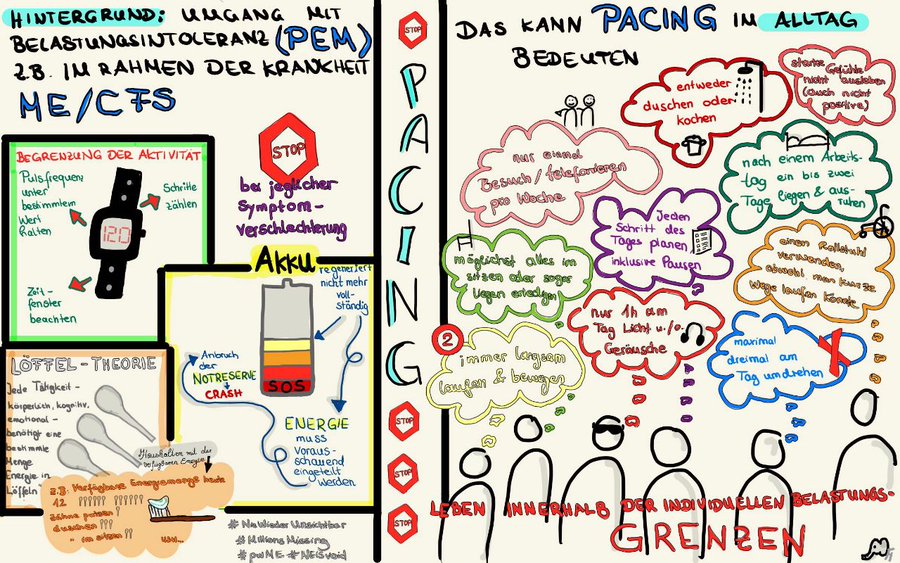 HINTERGRUND: UMGANG MIT
BELASTUNGSINTOLERANZ (PEM)
Z.B. IM RAHMEN DER KRANKHEIT
ME/CFS
BEGRENZUNG DER AKTIVITÄT
Pulsfrequenz
unter
bestimmtem
Wert
halten
Schritte
zählen
120
Zeit-
fenster
beachten
STOP
bei jeglicher
Symptom-
verschlechterung
Akku
regeneriert
nicht mehr
voll-
ständig
Anbruch
der
NOTRESERVE
CRASH
SOS
ENERGIE
muss
voraus-
schauend
eingeteilt
werden
LÖFFEL-THEORIE
Jede Tätigkeit -
körperlich, kognitiv,
emotional -
benötigt eine
bestimmte
Menge
Energie in
Löffeln
Haushalten mit der
verfügbaren Energie
z.B. Verfügbare Energiemenge heute
12
Zähne putzen
duschen
" im sitzen
usw...
# NieWieder Unsichtbar
# Millions Missing
# pwME # NEISvoid
STOP
PACING
STOP
STOP
STOP
DAS KANN PACING IM ALLTAG
BEDEUTEN
entweder
duschen oder
kochen
starke
Gefühle
nicht ausleben
(auch nicht
positive)
nur einmal
Besuch/telefonieren
pro Woche
nach einem Arbeits-
tag ein bis zwei
Tage liegen & aus-
ruhen
jeden
Schritt des
Tages planen,
inklusive Pausen
möglichst alles im
sitzen oder sogar
liegen erledigen
einen Rollstuhl
verwenden,
obwohl man kurze
Wege laufen könnte
nur 1h am
Tag Licht u./o.
Geräusche
2
immer langsam
laufen & bewegen
maximal
dreimal am
Tag umdrehen
LEBEN INNERHALB DER INDIVIDUELLEN BELASTUNGS-
GRENZEN